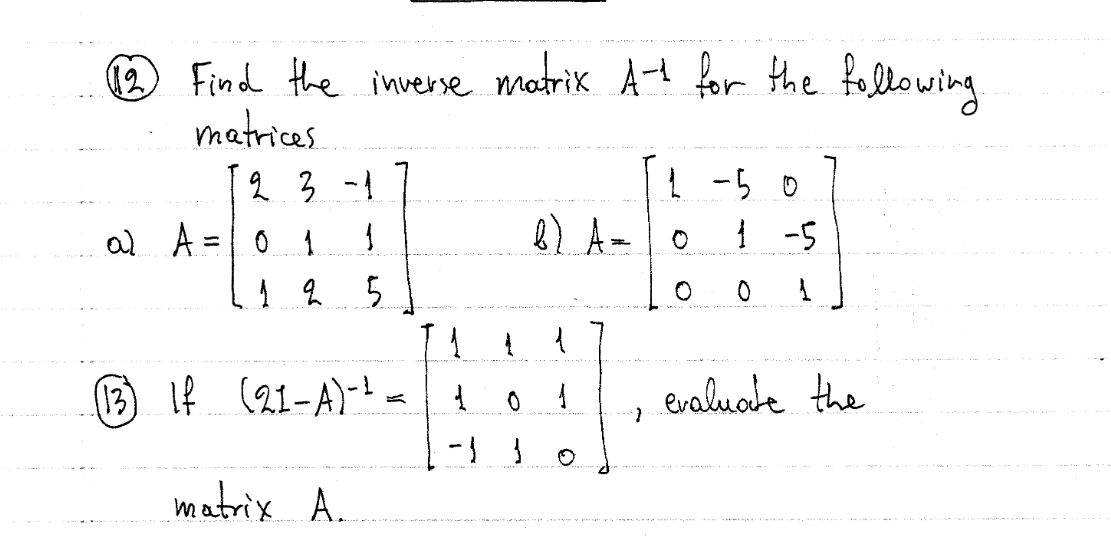 12 Find the inverse matrix A-1 for the following
matrices
a) A = [2 3 -1; 0 1 1; 1 2 5] b) A = [1 -5 0; 0 1 -5; 0 0 1]
13 If (2I-A)-1 = [1 1 1; 1 0 1; -1 1 0], evaluate the
matrix A.